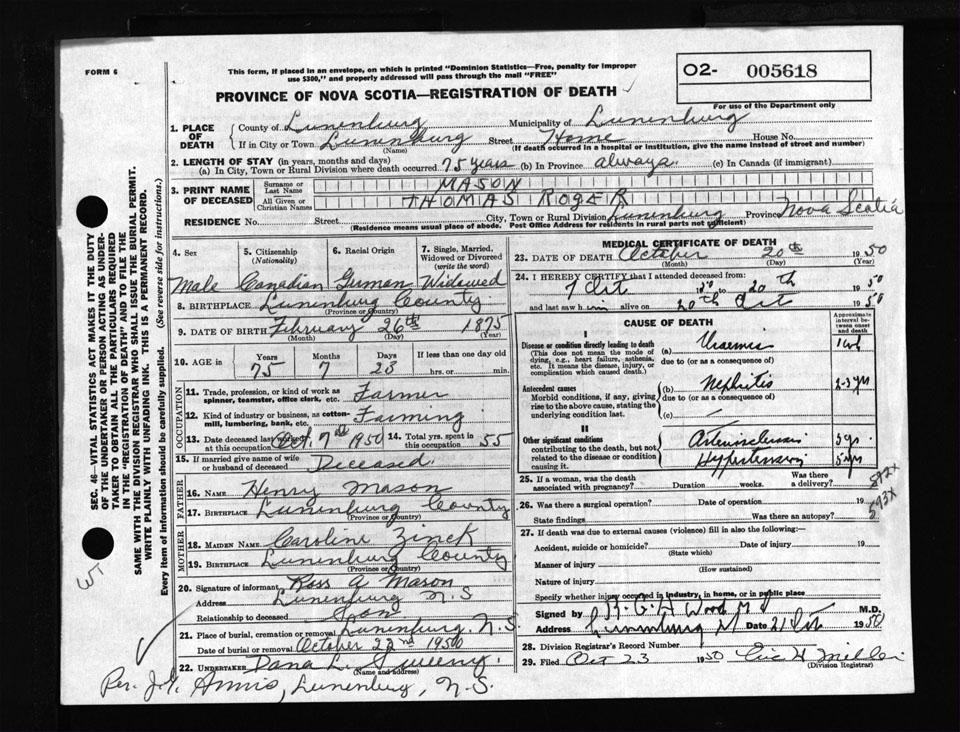 FORM 6
This form, if placed in an envelope, on which is printed "Dominion Statistics—Free, penalty for improper
use $300," and properly addressed will pass through the mail "FREE"
O2- 005618
PROVINCE OF NOVA SCOTIA—REGISTRATION OF DEATH
For use of the Department only
1. PLACE OF DEATH
County of Lunenburg Municipality of Lunenburg
If in City or Town Lunenburg Street Home House No.
(Name) (If death occurred in a hospital or institution, give the name instead of street and number)
2. LENGTH OF STAY (in years, months and days)
(a) In City, Town or Rural Division where death occurred 75 years (b) In Province always. (c) In Canada (if immigrant)
3. PRINT NAME OF DECEASED
Surname or Last Name MASON
All Given or Christian Names THOMAS ROGER
RESIDENCE No. Street City, Town or Rural Division Lunenburg Province Nova Scotia
(Residence means usual place of abode. Post Office Address for residents in rural parts not sufficient)
4. Sex
5. Citizenship (Nationality)
6. Racial Origin
7. Single, Married, Widowed or Divorced (write the word)
Male Canadian German Widowed
8. BIRTHPLACE Lunenburg County
(Province or Country)
9. DATE OF BIRTH February 26th 1875
(Month) (Day) (Year)
10. AGE in Years Months Days If less than one day old
75 7 23 hrs. or min.
OCCUPATION
11. Trade, profession, or kind of work as spinner, teamster, office clerk, etc. Farmer
12. Kind of industry or business, as cotton-mill, lumbering, bank, etc. Farming
13. Date deceased last worked at this occupation Oct. 7th 1950 14. Total yrs. spent in this occupation 55
15. If married give name of wife or husband of deceased Deceased.
FATHER
16. NAME Henry Mason
17. BIRTHPLACE Lunenburg County
(Province or Country)
MOTHER
18. MAIDEN NAME Caroline Zinck
19. BIRTHPLACE Lunenburg County
(Province or Country)
20. Signature of informant Ross A Mason
Address Lunenburg N.S
Relationship to deceased Son
21. Place of burial, cremation or removal Lunenburg, N.S.
Date of burial or removal October 22nd 1950
22. UNDERTAKER Dana L. Sweeny.
(Name and address)
Per. Annis, Lunenburg, N.S.
MEDICAL CERTIFICATE OF DEATH
23. DATE OF DEATH October 20th 1950
(Month) (Day) (Year)
24. I HEREBY CERTIFY that I attended deceased from:
7 Oct 1950 to 20th 1950
and last saw him alive on 20th Oct 1950
CAUSE OF DEATH
Approximate interval between onset and death
I
Disease or condition directly leading to death
(This does not mean the mode of dying, e.g., heart failure, asthenia, etc. It means the disease, injury, or complication which caused death.)
(a) Uraemia
due to (or as a consequence of)
Antecedent causes
Morbid conditions, if any, giving rise to the above cause, stating the underlying condition last.
(b) Nephritis 2-3 yrs
due to (or as a consequence of)
(c)
II
Other significant conditions
contributing to the death, but not related to the disease or condition causing it.
Arteriosclerosis 5 yrs.
Hypertension 5 yrs
25. If a woman, was the death associated with pregnancy? Duration weeks. Was there a delivery?
592x
593x
26. Was there a surgical operation? Date of operation 19
State findings Was there an autopsy?
27. If death was due to external causes (violence) fill in also the following:—
Accident, suicide or homicide? Date of injury 19
(State which)
Manner of injury
(How sustained)
Nature of injury
Specify whether injury occurred in industry, in home, or in public place
Signed by Wood M.D.
Address Lunenburg Date 21 Oct 1950
28. Division Registrar's Record Number
29. Filed Oct 23 1950
(Division Registrar)
SEC. 46—VITAL STATISTICS ACT MAKES IT THE DUTY
OF THE UNDERTAKER OR PERSON ACTING AS UNDER-
TAKER TO OBTAIN ALL THE PARTICULARS REQUIRED
IN THE "REGISTRATION OF DEATH" AND TO FILE THE
SAME WITH THE DIVISION REGISTRAR WHO SHALL ISSUE THE BURIAL PERMIT.
WRITE PLAINLY WITH UNFADING INK. THIS IS A PERMANENT RECORD.
Every item of information should be carefully supplied. (See reverse side for instructions.)